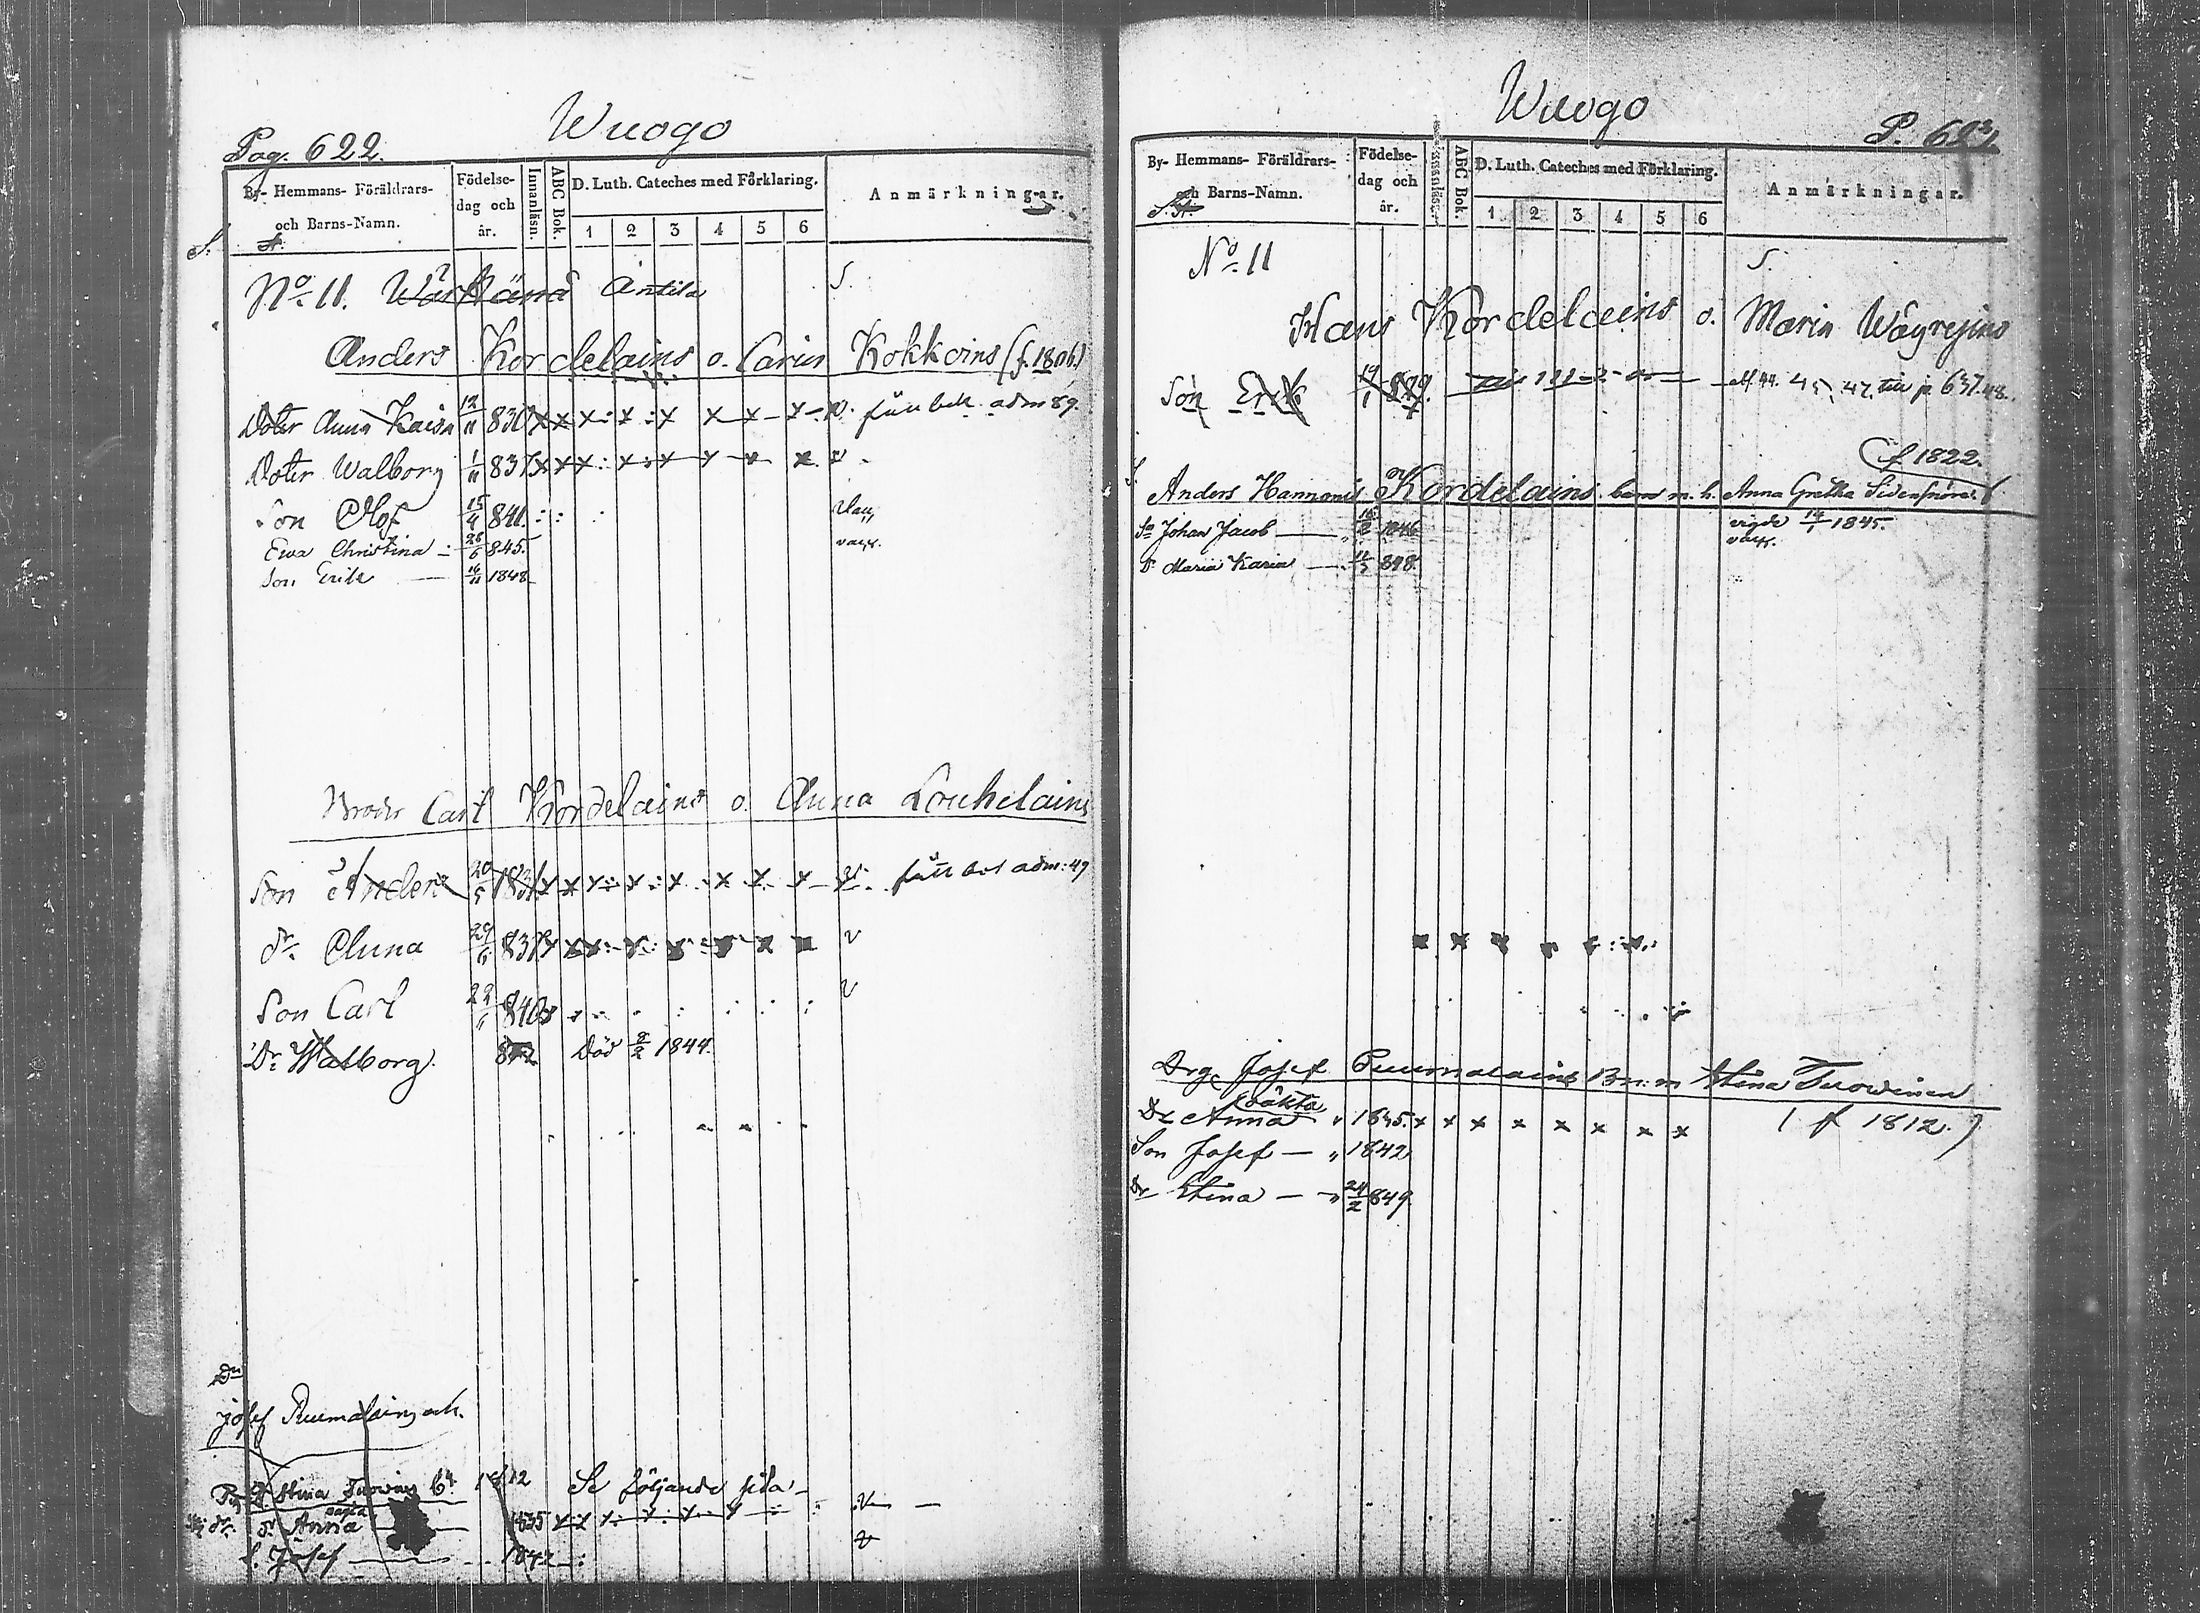 Wuogo
Pag. 622.
By- Hemmans- Föräldrars-
och Barns-Namn.
Födelse-
dag och
år.
Innanläsn.
ABC Bok.
D. Luth. Cateches med Förklaring.
1 2 3 4 5 6
Anmärkningar.
S.
No. 11. Antila S.
Anders Kordelains o. Carin Kokkoins (f. 1806)
Doter Anna Kaisa 12/11 836 x x x x x x x x adm 89.
Doter Walborg 1/11 837 x x x x x x x x v
Son Olof 15/4 841.
Ewa Christina 845. vacc.
Son Erik 16/11 1848
Broder Carl Kordelains o. Anna Louhelains
Son Anders 20/5 183 x x x x x x x x adm: 49
dr. Anna 29/6 837 x x x x x x x v
Son Carl 22/11 840 v
Dr Walborg. 842 Död 2/2 1844.
Josef Puumalains och.
Stina Tuowinen 1812 Se följande sida
dr. Anna 1835 x x x x x x v
S. Josef 1842 v
Wuogo
P. 623.
By- Hemmans- Föräldrars-
och Barns-Namn.
Födelse-
dag och
år.
ABC Bok.
D. Luth. Cateches med Förklaring.
1 2 3 4 5 6
Anmärkningar.
No. 11 S.
Hans Kordelains o. Maria Wäyrejins
Son Erik 19/1 829. 45, 47. till p 637.
f 1822.
Anders Hannonis Kordelains m. h. Anna Gretha
Sn Johan Jacob 16/2 1846 vigde 14/1 1845.
vacc.
Dr Maria Karin 848.
x x x x x x
Drg Josef Puumalains m Stina Tuowinen
oäkta
Dr Anna " 1835. x x x x x x x x (f 1812.)
Son Josef — " 1842
Dr Stina — " 24/2 849.